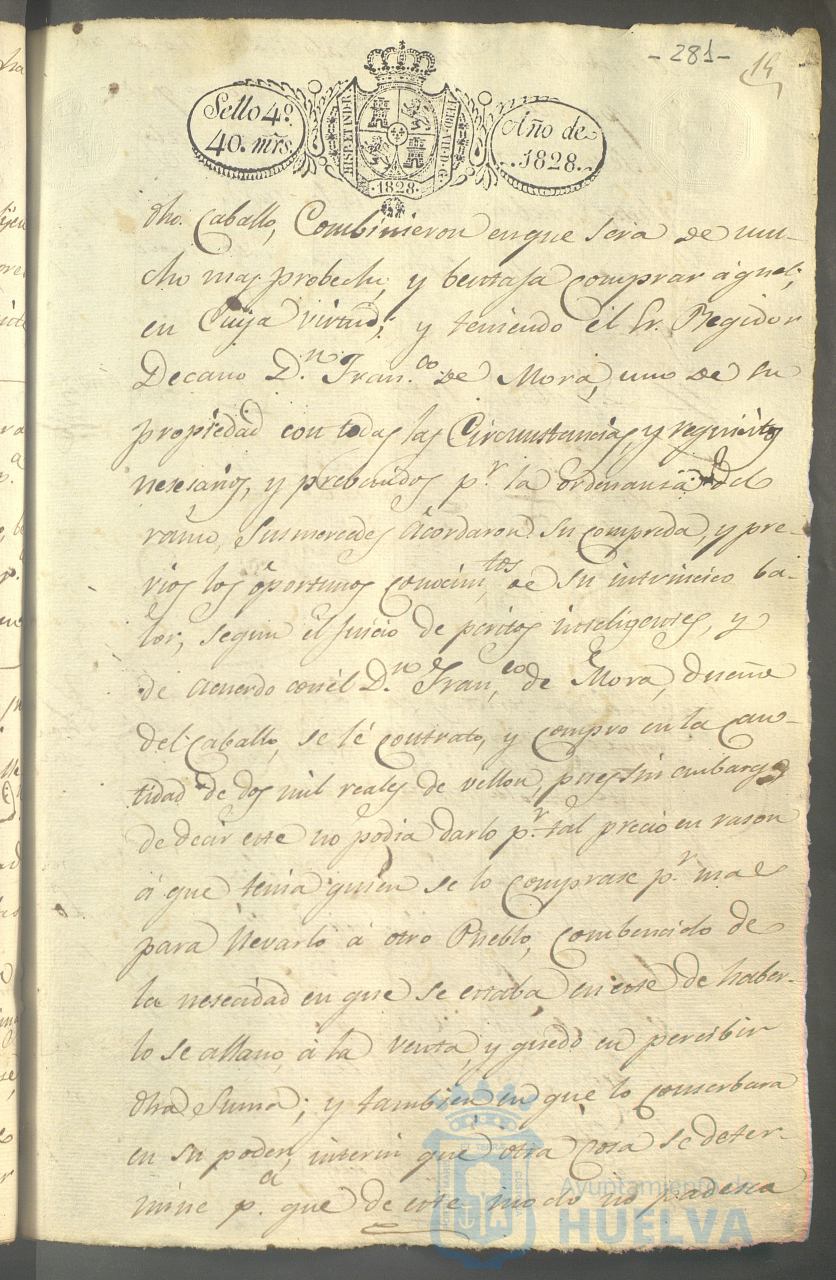 - 281 -
Sello 4º.
40. mrs.
HISP. ET IND. R.
1828.
Año de
1828.
dho. Caballo, Combinieron en que sera de mu-
cho mas probecho, y bentaja comprar aquel;
en Cuija virtud; y teniendo el Sr. Regidor
Decano D.n Fran.co de Mora, uno de su
propiedad con todas las Circunstancias, y requicitos
nesesarios, y prebenidos p.r la ordenansa del
ramo, Susmercedes Acordaron su compreda, y pre-
vios los oportunos conocim.tos, de su intrincico ba-
lor, segun el Juicio de peritos inteligentes, y
de acuerdo con el D.n Fran.co de Mora, dueño
del Caballo, se lé contrato, y compro en la can-
tidad de dos mil reales de vellon, pues sin embargo
de decir este no podia darlo p.r tal precio en rason
á que tenia quien se lo comprase p.r mas
para llevarlo á otro Pueblo, combencido de
la nesecidad en que se estaba en este de haber-
lo se allano á la venta, y quedó en percibir
dha Suma; y tambien en que lo conserbara
en su poder, interin que otra cosa se deter-
mine p.a que de este modo no padesca
Ayuntamiento de
HUELVA